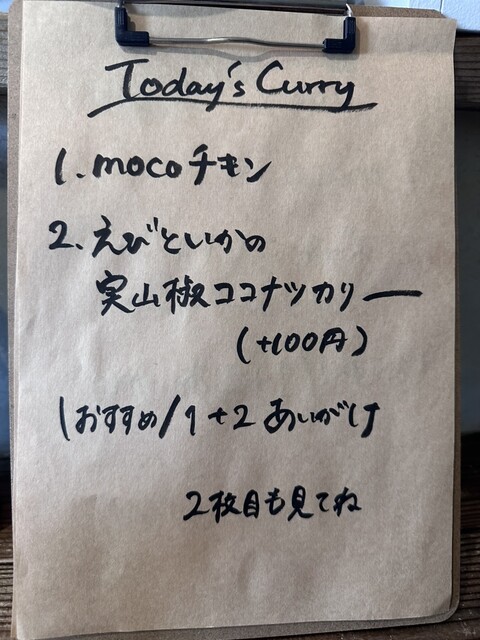 Today's Curry
1. mocoチキン
2. えびといかの
実山椒ココナツカリー
(+100円)
\おすすめ/ 1+2 あいがけ
2枚目も見てね